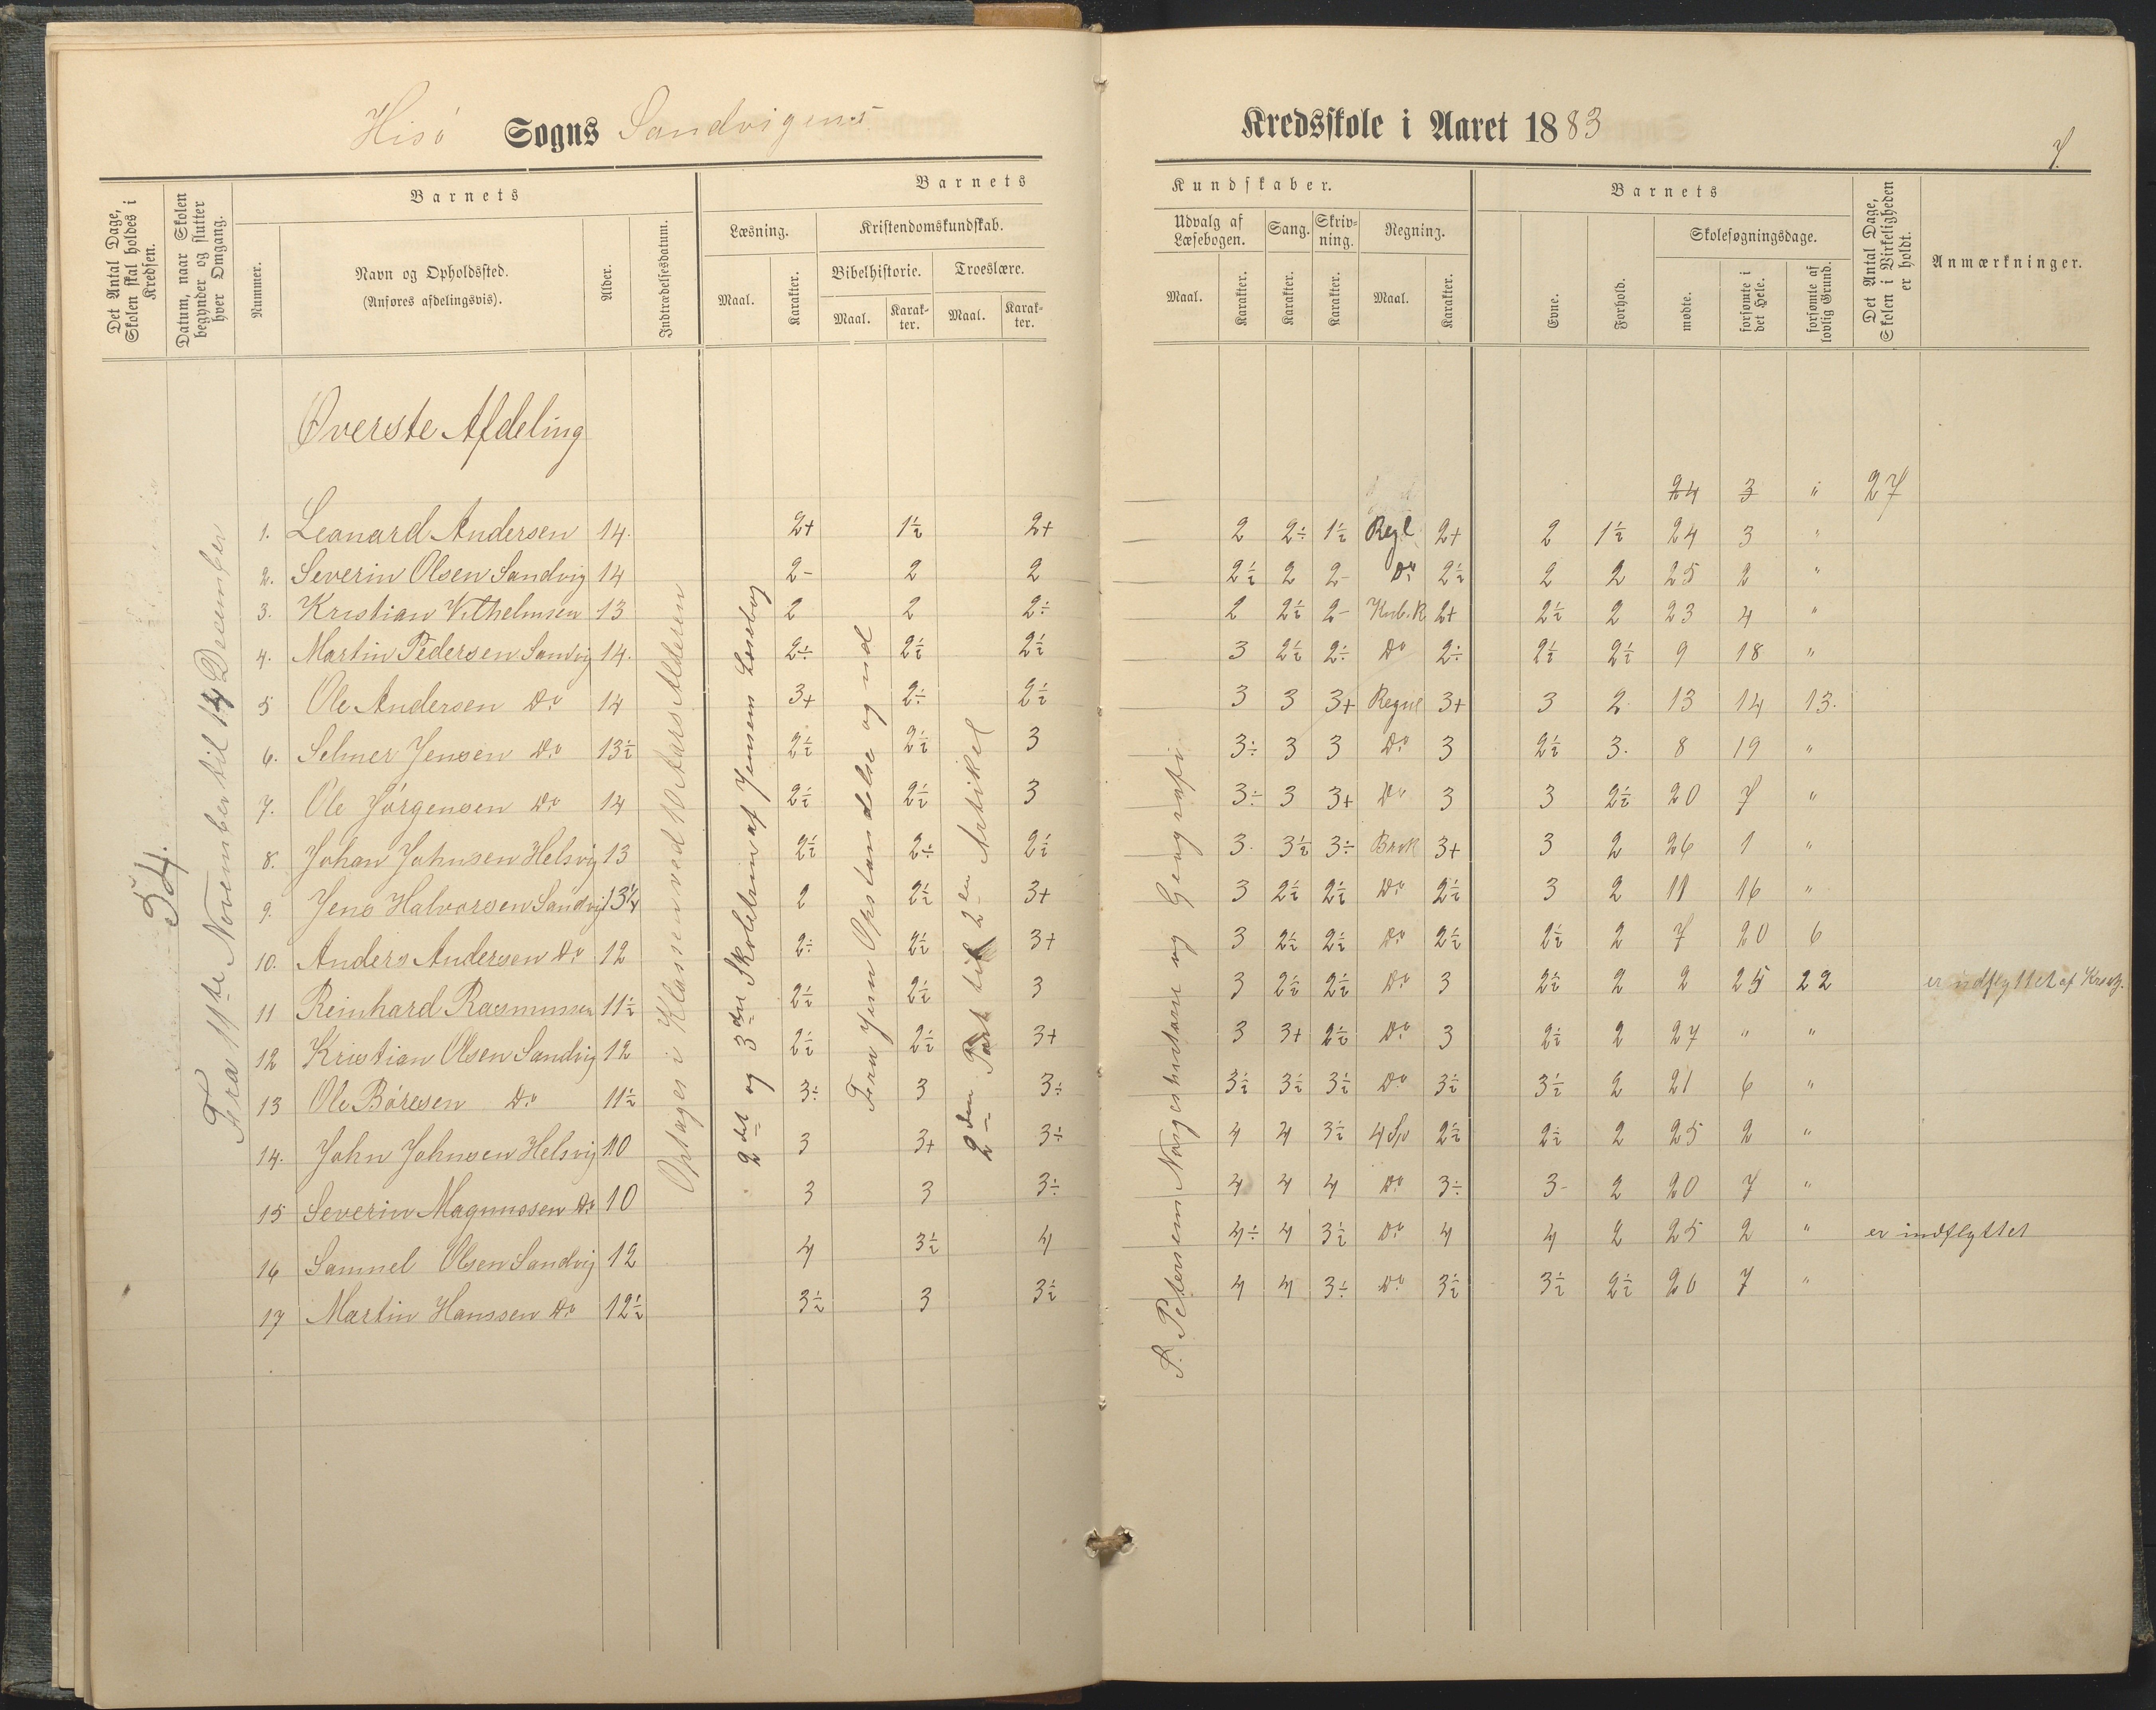 Hisö Sogns Sandvigens Kredsskole i Aaret 1883
7.
Det Antal Dage, Skolen skal holdes i Kredsen.
Datum, naar Skolen begynder og slutter hver Omgang.
Barnets
Nummer.
Navn og Opholdssted.
(Anføres afdelingsvis).
Alder.
Indtrædelsesdatum.
Barnets Kundskaber.
Læsning.
Maal.
Karakter.
Kristendomskundskab.
Bibelhistorie.
Maal.
Karakter.
Troeslære.
Maal.
Karakter.
Udvalg af Læsebogen.
Maal.
Karakter.
Sang.
Karakter.
Skrivning.
Karakter.
Regning.
Maal.
Karakter.
Barnets
Evne.
Forhold.
Skolesøgningsdage.
mødte.
forsømte i det Hele.
forsømte af lovlig Grund.
Det Antal Dage, Skolen i Virkeligheden er holdt.
Anmærkninger.
Øverste Afdeling
24 3 " 27
Fra 11te November til 14 December
Optages i Klassen ved 10 Aars Alderen
2det og 3die Skoletrin af Jensens Læsebog
Fra Jesu Opstandelse og ud
2den Part til 2en Artikel
P. Petersens Norgeshistorie og Geografi
1. Leonard Andersen 14. 2+ 1½ 2+ 2 2÷ 1½ Regl 2+ 2 1½ 24 3 "
2. Severin Olsen Sandvig 14 2- 2 2 2½ 2 2- Do 2½ 2 2 25 2 "
3. Kristian Vilhelmsen 13 2 2 2÷ 2 2½ 2- Kub.R 2+ 2½ 2 23 4 "
4. Martin Pedersen Sandvig 14. 2÷ 2½ 2½ 3 2½ 2÷ Do 2÷ 2½ 2½ 9 18 "
5 Ole Andersen Do 14 3+ 2÷ 2½ 3 3 3+ Regul 3+ 3 2 13 14 13.
6. Selmer Jensen Do 13½ 2½ 2½ 3 3÷ 3 3 Do 3 2½ 3. 8 19 "
7. Ole Jörgensen Do 14 2½ 2½ 3 3÷ 3 3+ Do 3 3 2½ 20 7 "
8. Johan Johnsen Helsvig 13 2½ 2÷ 2½ 3. 3½ 3÷ Brok 3+ 3 2 26 1 "
9. Jens Halvorsen Sandvig 13¼ 2 2½ 3+ 3 2½ 2½ Do 2½ 3 2 11 16 "
10. Anders Andersen Do 12 2÷ 2½ 3+ 3 2½ 2½ Do 2½ 2½ 2 7 20 6
11 Reinhard Rasmussen 11½ 2½ 2½ 3 3 2½ 2½ Do 3 2½ 2 2 25 22 er udflyttet af
12 Kristian Olsen Sandvig 12 2½ 2½ 3+ 3 3+ 2½ Do 3 2½ 2 27 " "
13 Ole Börresen Do 11½ 3÷ 3 3÷ 3½ 3½ 3½ Do 3½ 3½ 2 21 6 "
14. John Johnsen Helsvig 10 3 3+ 3÷ 4 4 3½ 4 Sp 2½ 2½ 2 25 2 "
15 Severin Magnussen Do 10 3 3 3÷ 4 4 4 Do 3÷ 3- 2 20 7 "
16 Samuel Olsen Sandvig 12 4 3½ 4 4÷ 4 3½ Do 4 4 2 25 2 " er indflyttet
17 Martin Hanssen Do 12½ 3½ 3 3½ 4 4 3÷ Do 3½ 3½ 2½ 20 7 "